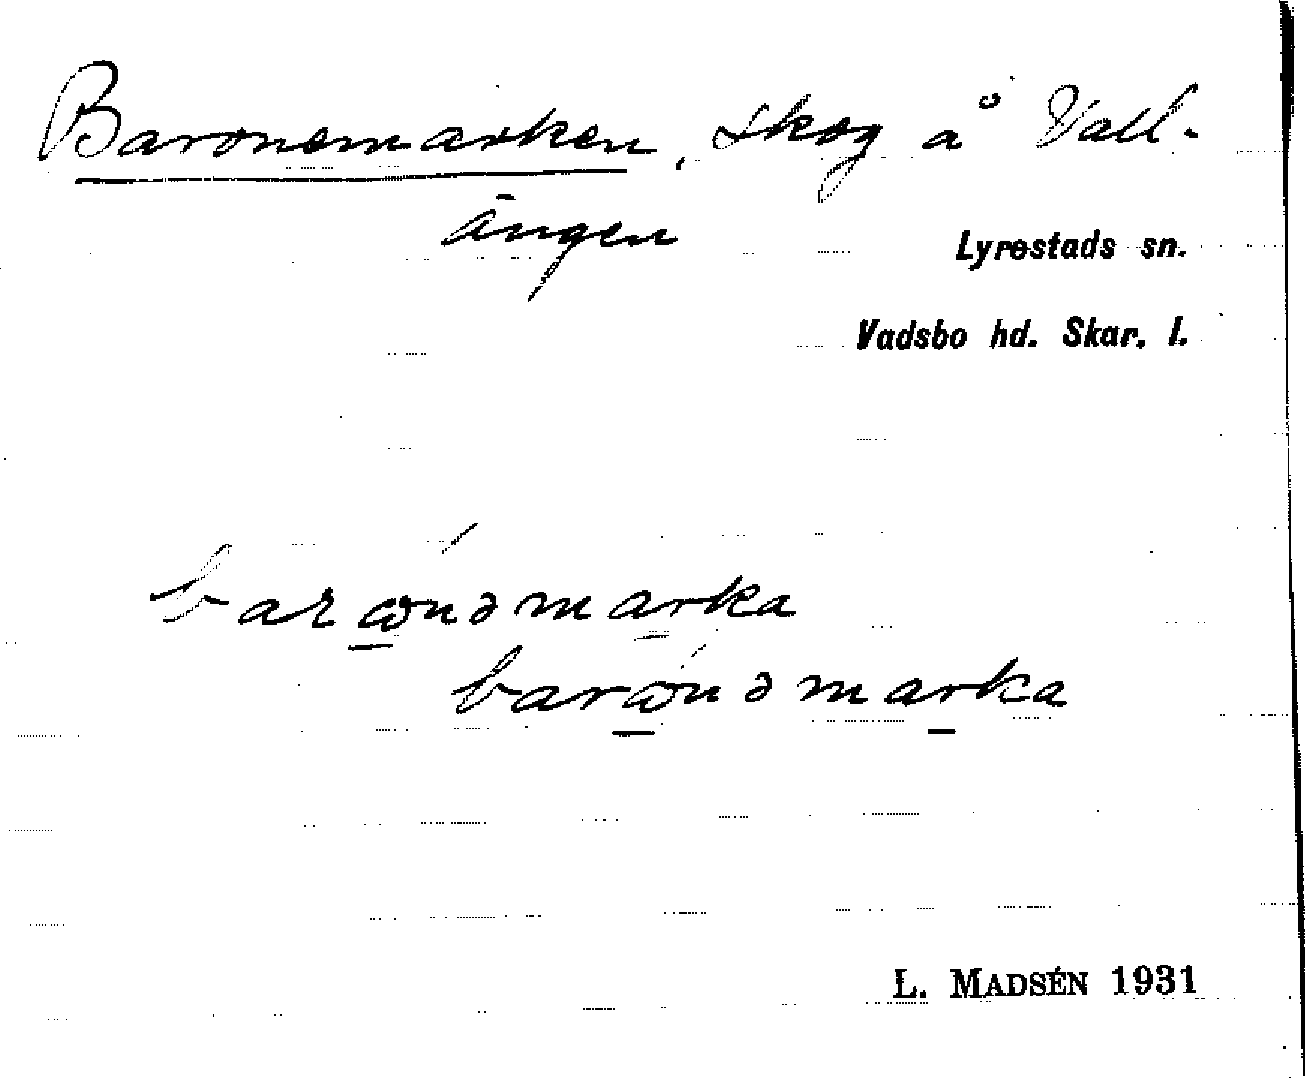 Baronemarken, skog å Vall-
ängen
Lyrestads sn.
Vadsbo hd. Skar. l.
barωnəmarka
barωnəmarka
L. MADSÉN 1931